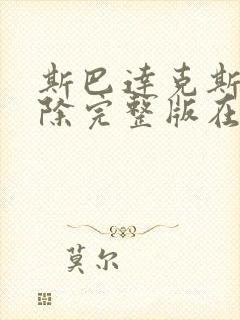 斯巴达克斯
除完整版在
莫尔